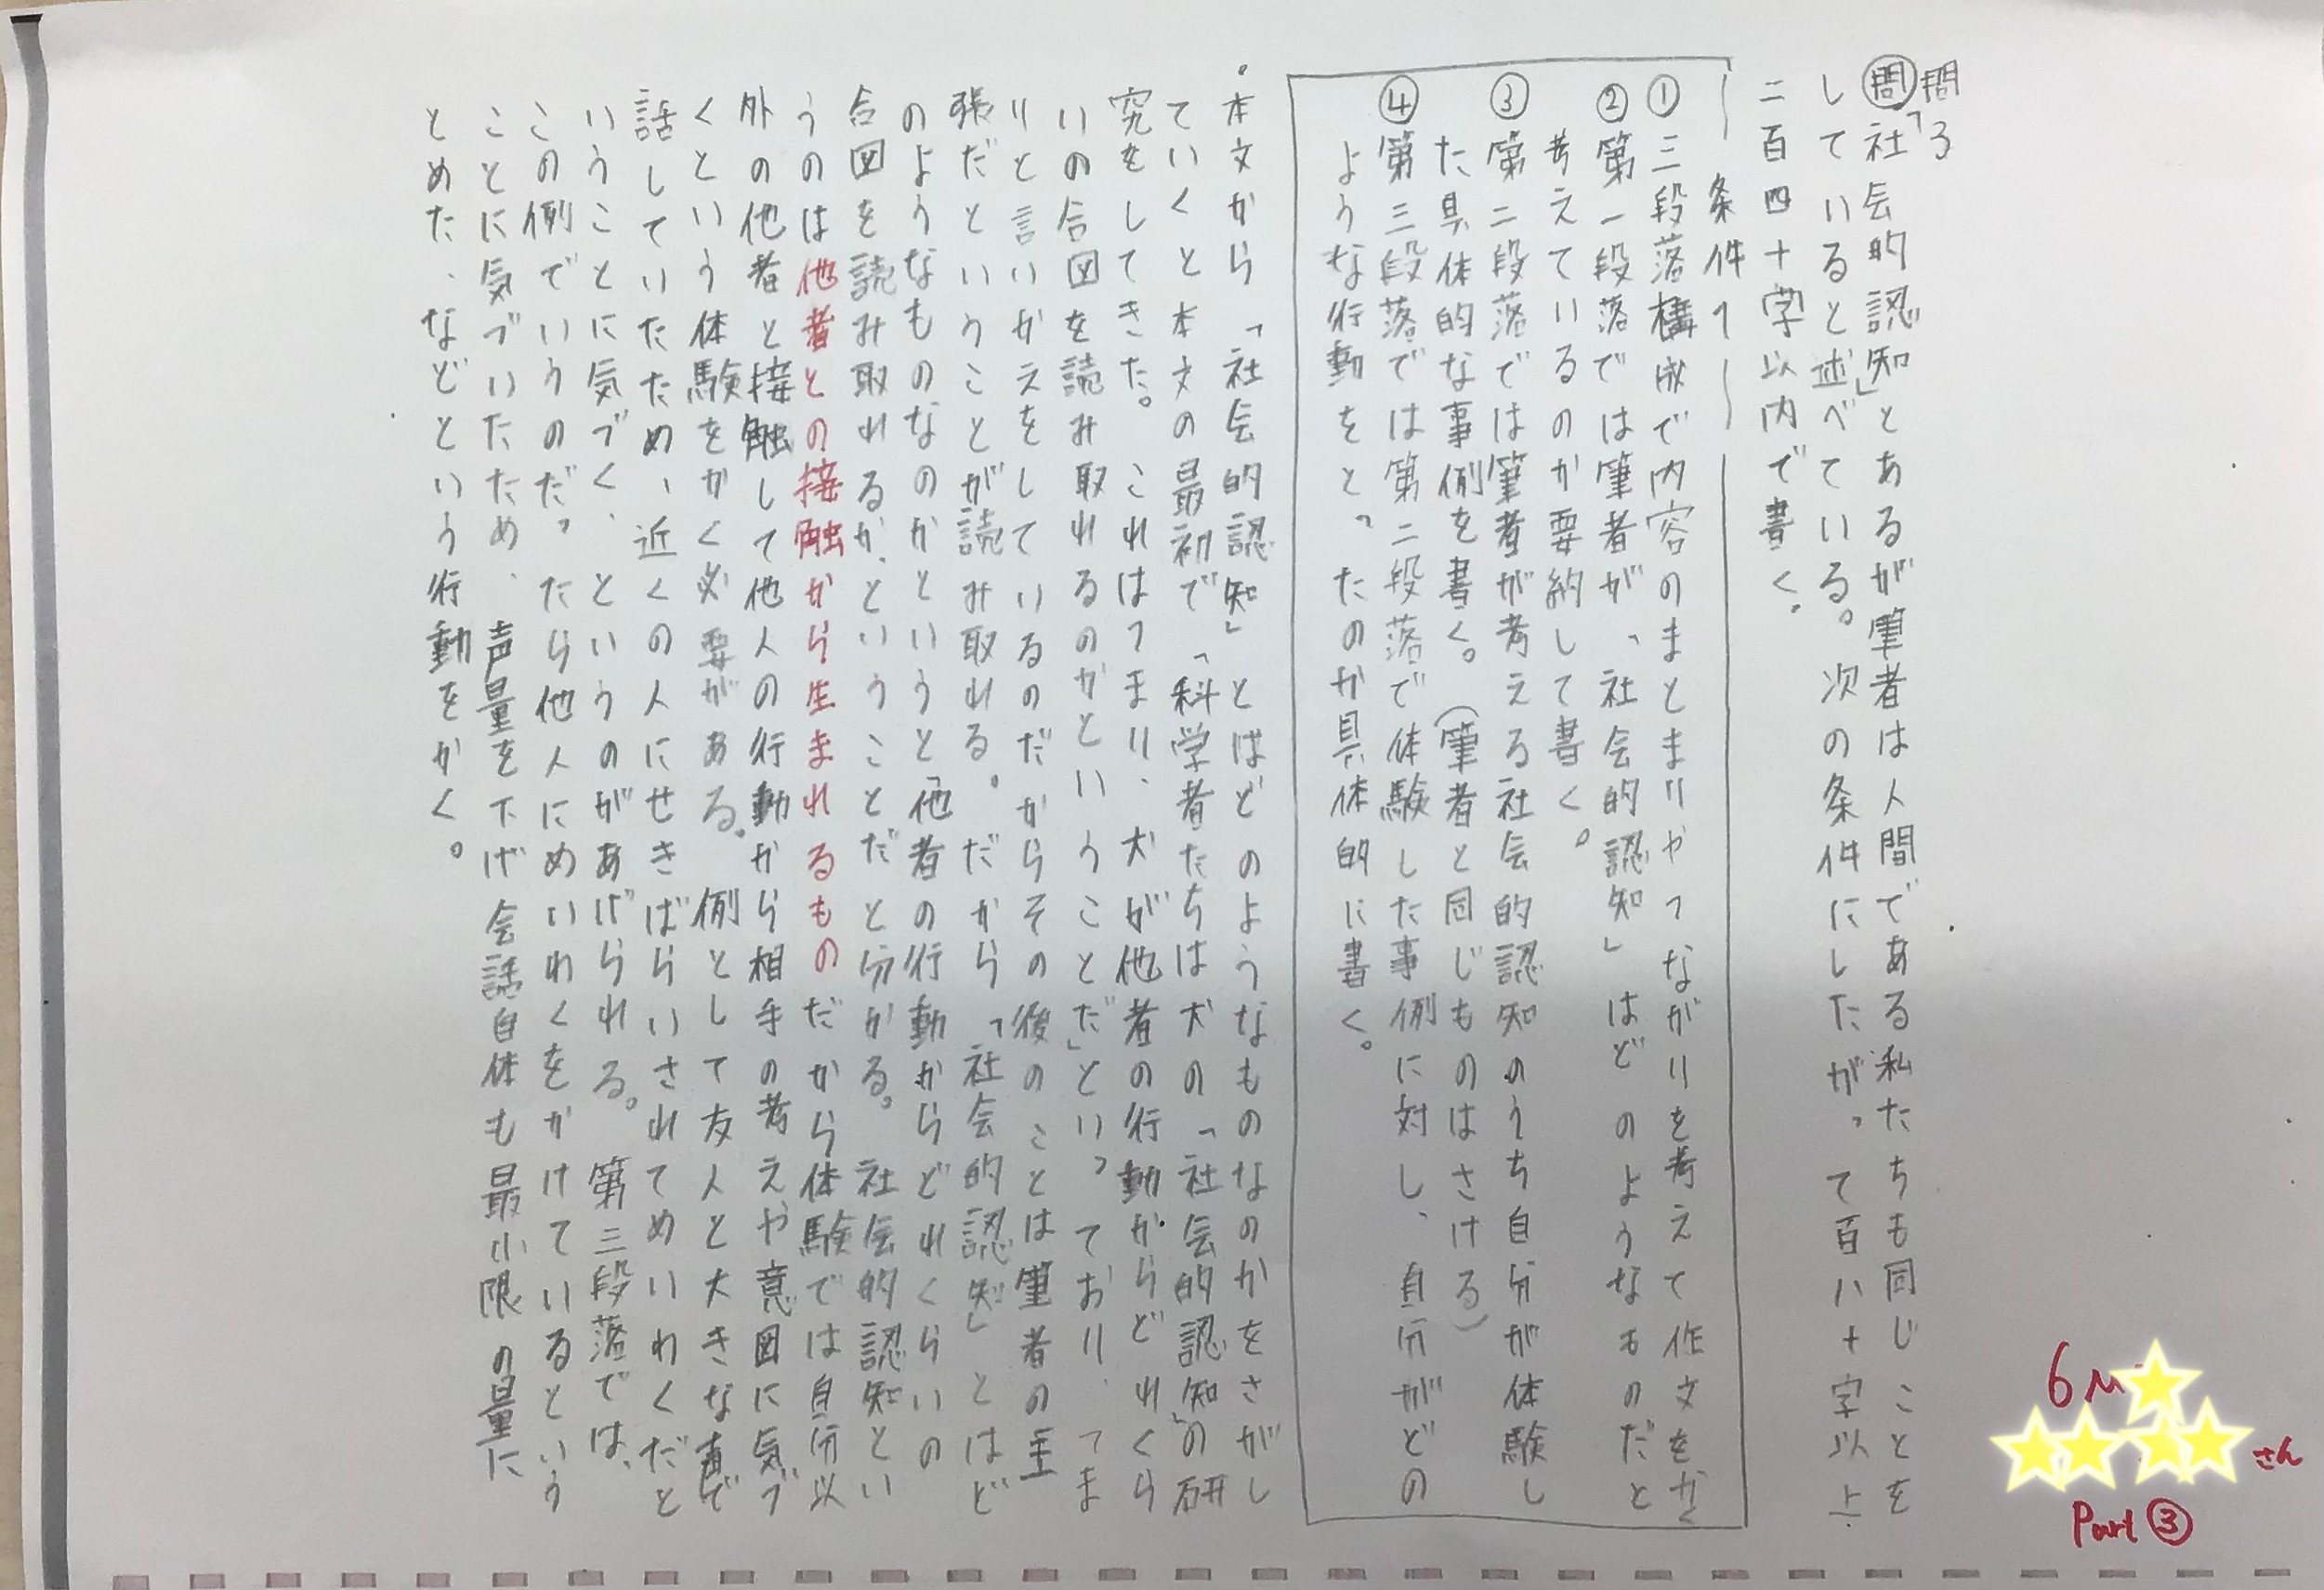 問3
問「社会的認知」とあるが筆者は人間である私たちも同じことを
していると述べている。次の条件にしたがって百八十字以上
二百四十字以内で書く。
条件
①三段落構成で内容のまとまりやつながりを考えて作文をかく
②第一段落では筆者が、「社会的認知」はどのようなものだと
考えているのか要約して書く。
③第二段落では筆者が考える社会的認知のうち自分が体験し
た具体的な事例を書く。(筆者と同じものはさける)
④第三段落では第二段落で体験した事例に対し、自分がどの
ような行動をとったのか具体的に書く。
・本文から「社会的認知」とはどのようなものなのかをさがし
ていくと本文の最初で「科学者たちは犬の「社会的認知」の研
究をしてきた。これはつまり、犬が他者の行動からどれくら
いの合図を読み取れるのかということだ」といっており、つま
りと言いかえをしているのだからその後のことは筆者の主
張だということが読み取れる。だから「社会的認知」とはど
のようなものなのかというと「他者の行動からどれくらいの
合図を読み取れるか、ということだと分かる。社会的認知とい
うのは他者との接触から生まれるものだから体験では自分以
外の他者と接触して他人の行動から相手の考えや意図に気づ
くという体験をかく必要がある。例として友人と大きな声で
話していたため、近くの人にせきばらいされてめいわくだと
いうことに気づく、というのがあげられる。第三段落では、
この例でいうのだったら他人にめいわくをかけているという
ことに気づいたため、声量を下げ会話自体も最小限の量に
とめた、などという行動をかく。
さん
Part③